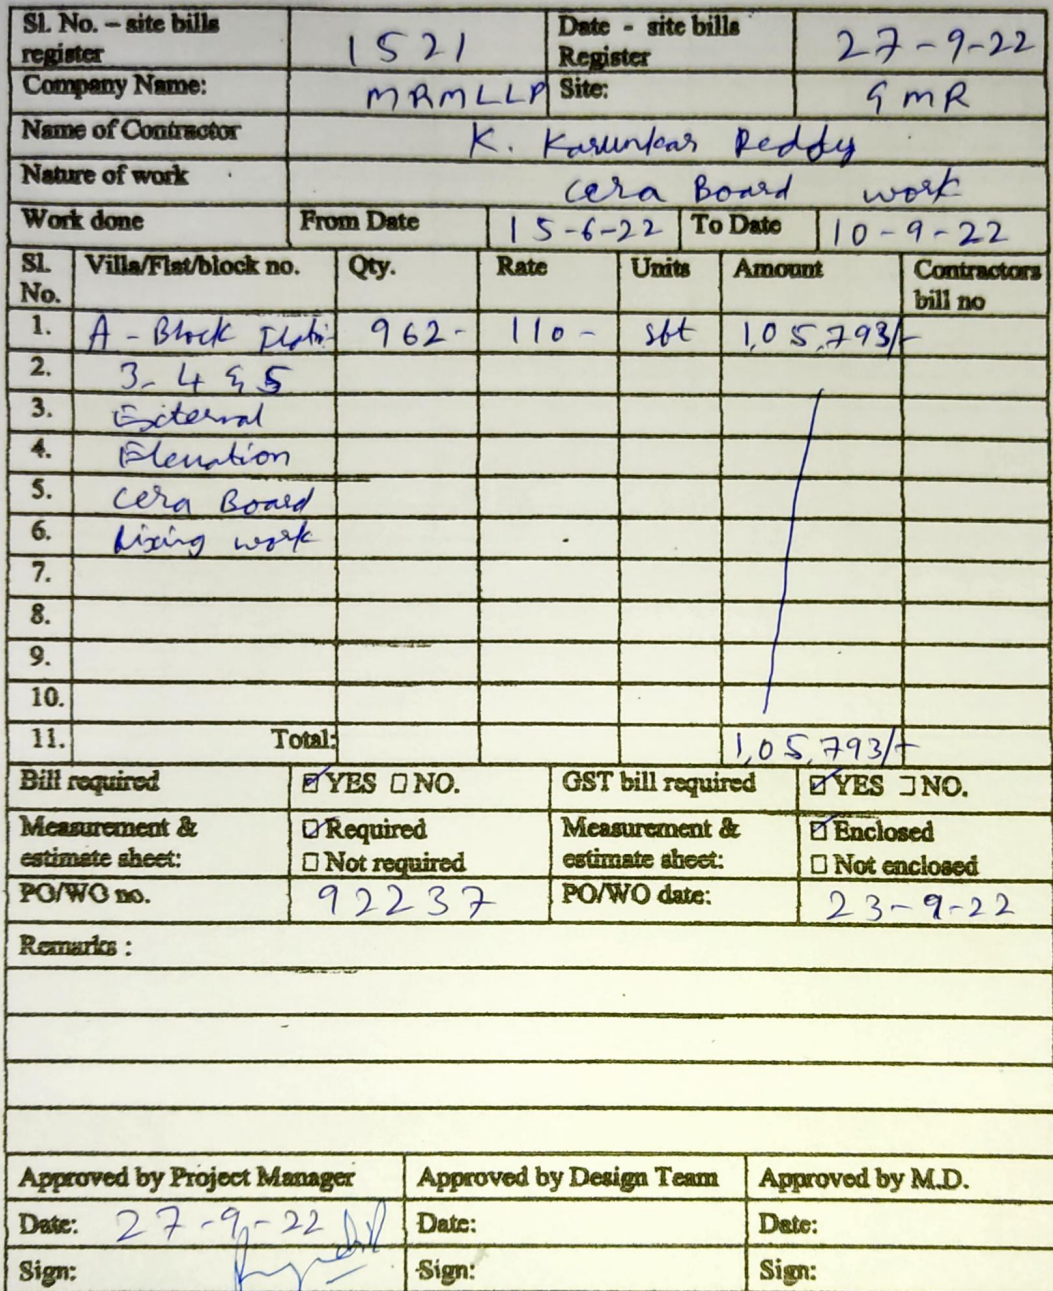 Sl. No. – site bills register 1521 Date - site bills Register 27-9-22
Company Name: MRMLLP Site: GMR
Name of Contractor K. Karunkar Reddy
Nature of work Cera Board work
Work done From Date 15-6-22 To Date 10-9-22
Sl. No. Villa/Flat/block no. Qty. Rate Units Amount Contractors bill no
1. A - Block Flats 962- 110- sft 1,05,793/-
2. 3- 4 & 5
3. External
4. Elevation
5. Cera Board
6. fixing work
7.
8.
9.
10.
11. Total: 1,05,793/-
Bill required ☑ YES ☐ NO. GST bill required ☑ YES ☐ NO.
Measurement & estimate sheet: ☑ Required ☐ Not required Measurement & estimate sheet: ☑ Enclosed ☐ Not enclosed
PO/WO no. 92237 PO/WO date: 23-9-22
Remarks :
Approved by Project Manager Approved by Design Team Approved by M.D.
Date: 27-9-22 Date: Date:
Sign: Sign: Sign: